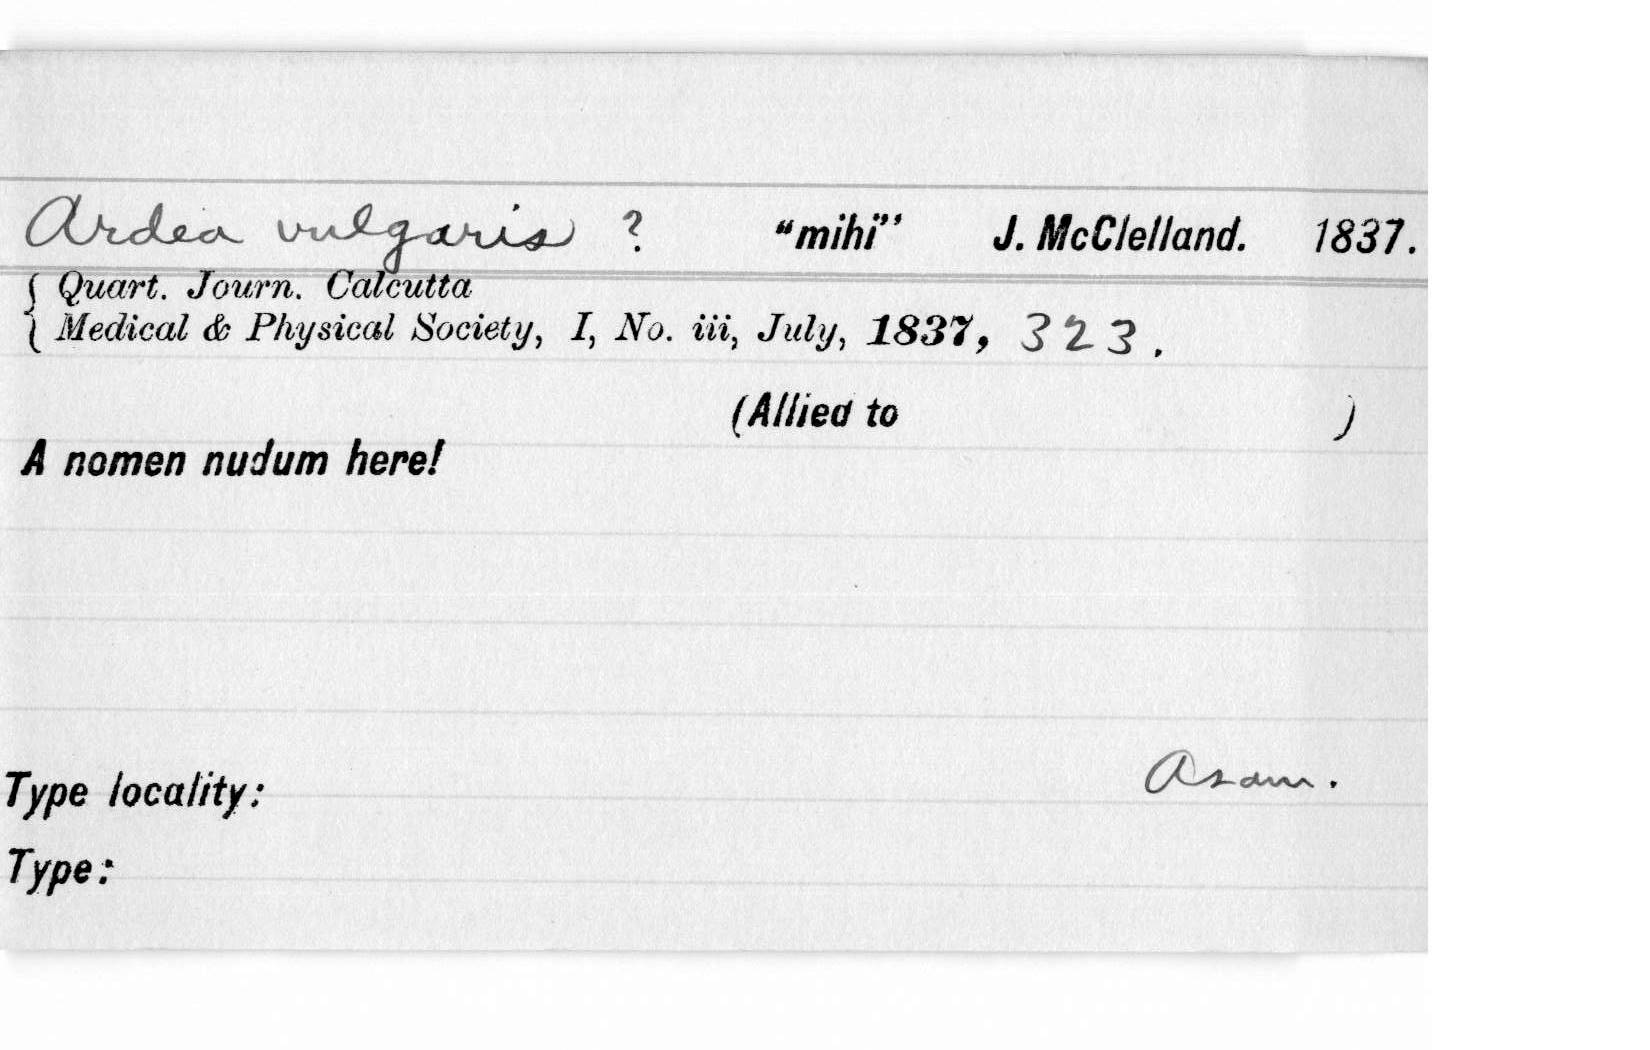 Ardea vulgaris ? "mihi" J. McClelland. 1837.
{ Quart. Journ. Calcutta
{ Medical & Physical Society, I, No. iii, July, 1837, 323.
(Allied to )
A nomen nudum here!
Type locality: Asam.
Type: